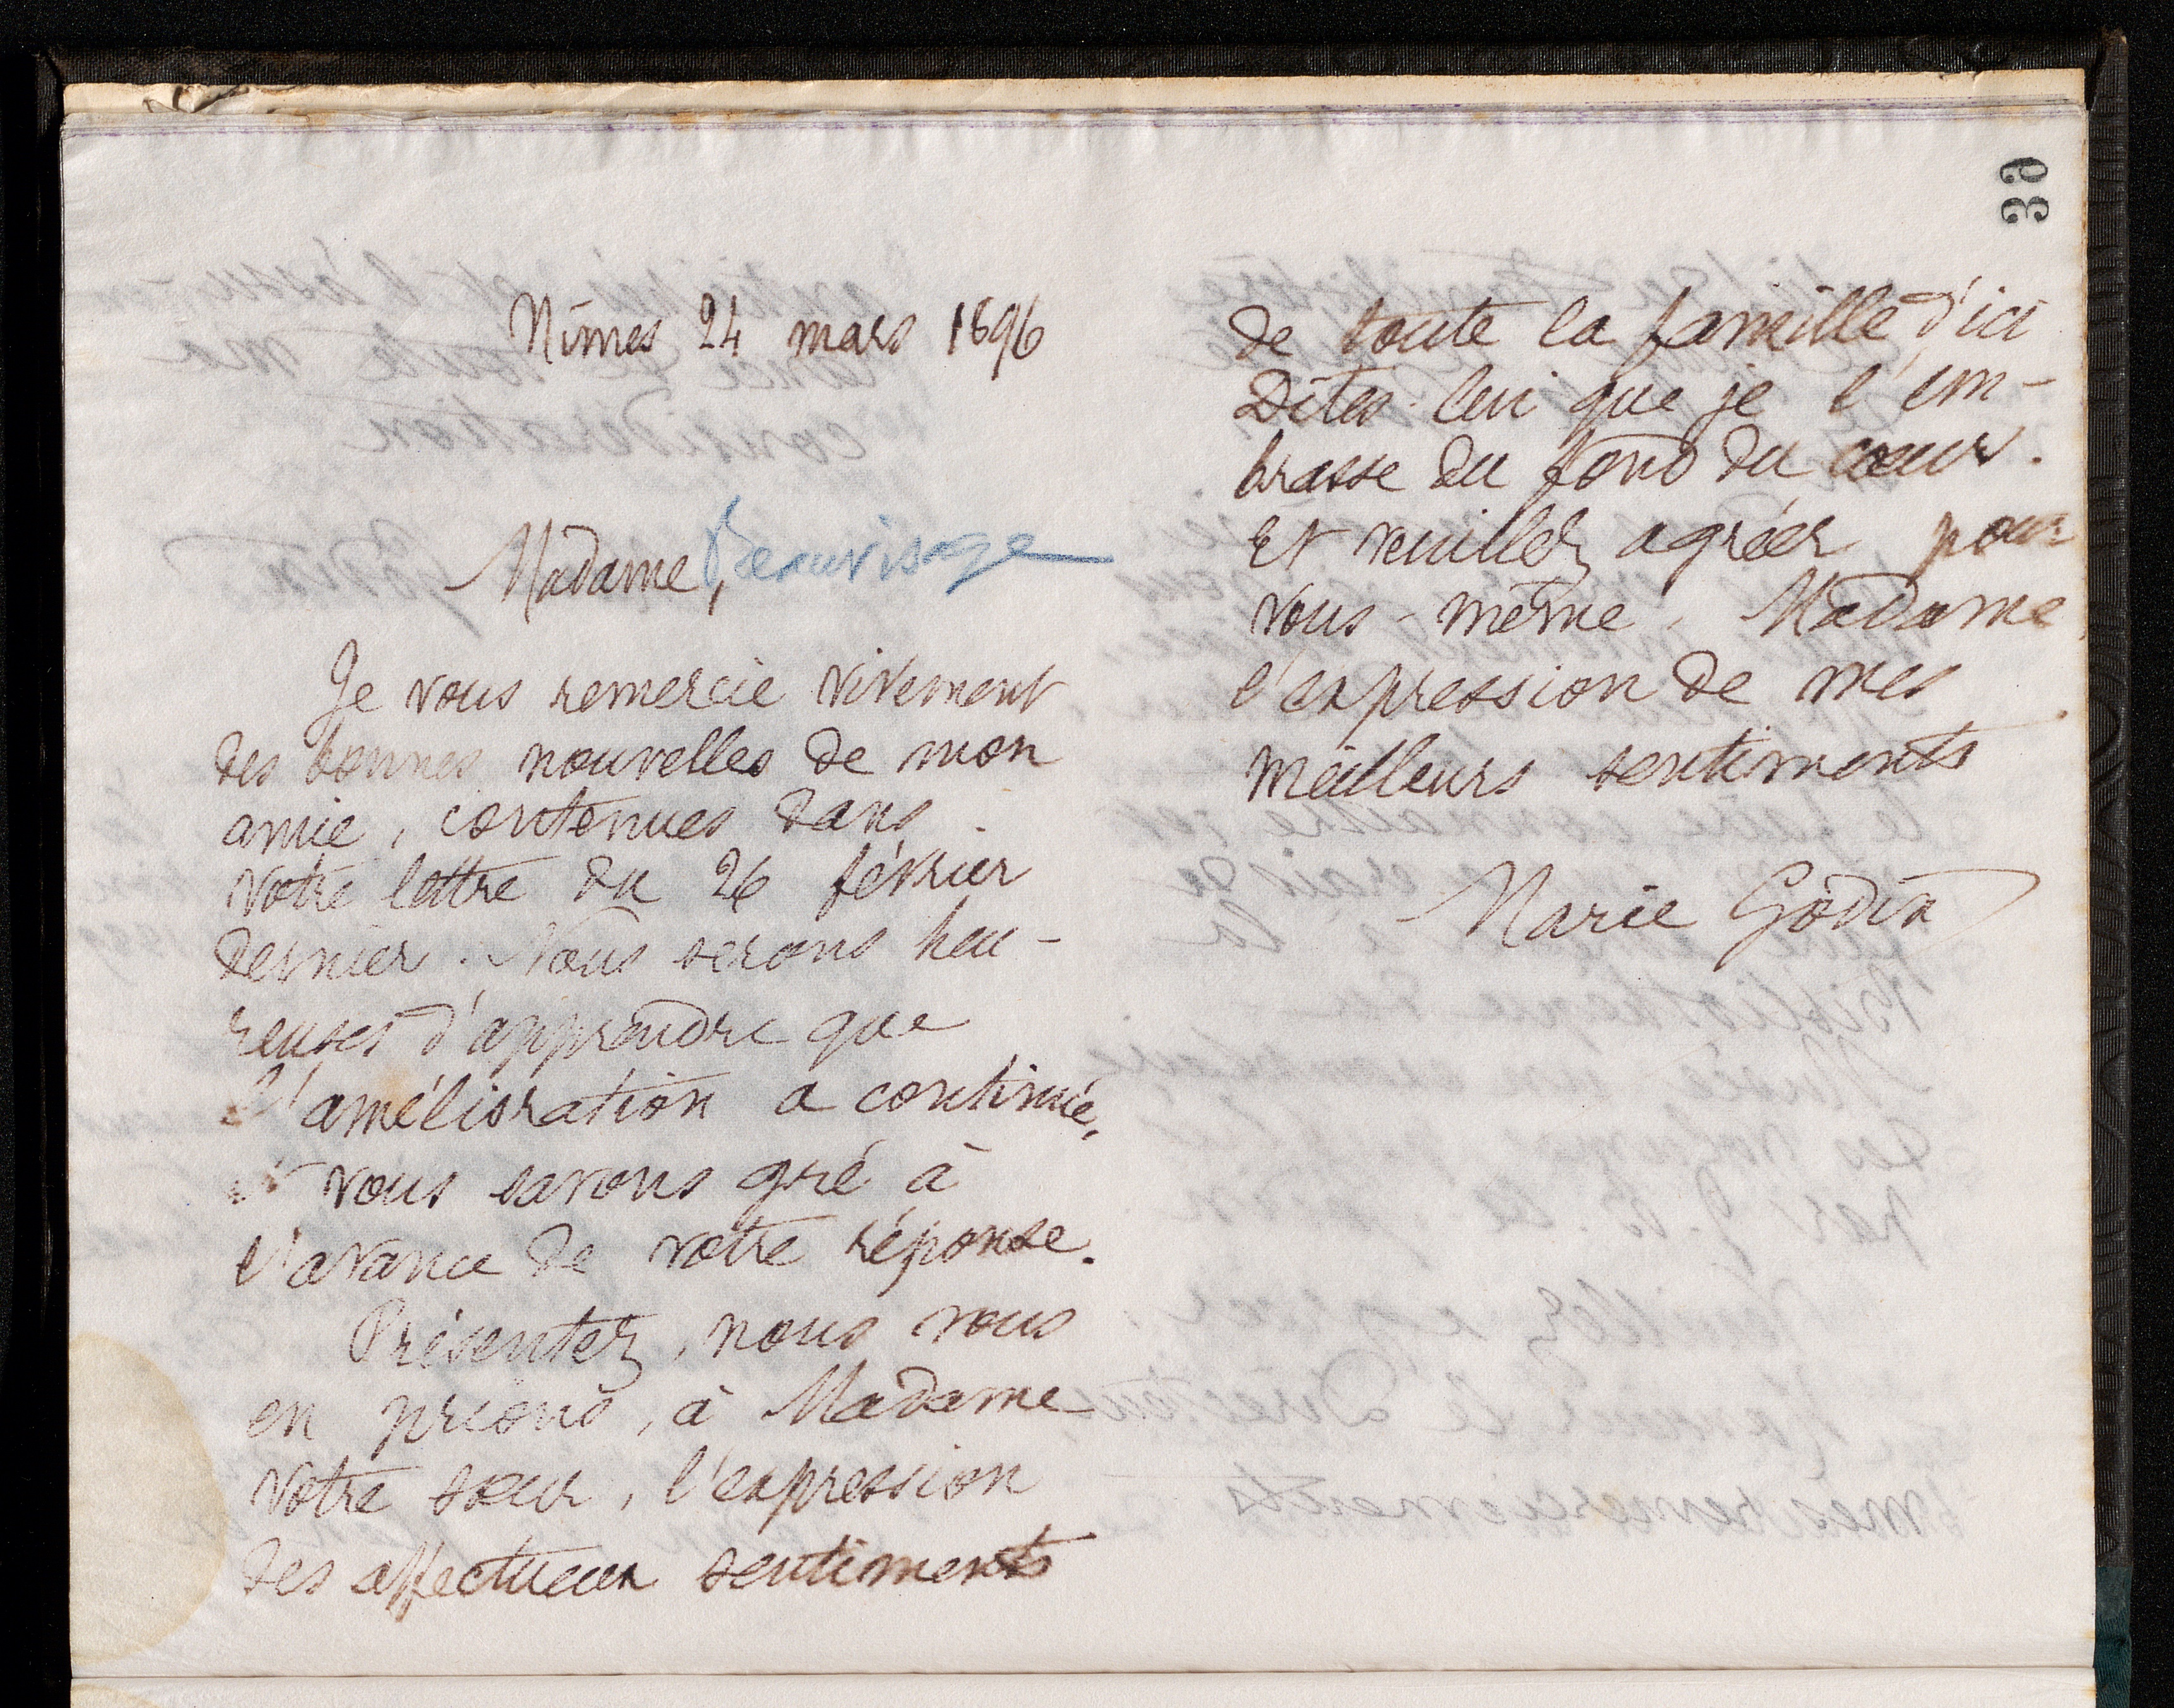 39
Nîmes 24 mars 1896
Madame, Beauvisage
Je vous remercie vivement
des bonnes nouvelles de mon
amie, contenues dans
votre lettre du 26 février
dernier. Nous serons heu-
reuses d'apprendre que
l'amélioration a continué,
et vous savons gré à
l'avance de votre réponse.
Présentez, nous vous
en prions, à Madame
votre sœur, l'expression
des affectueux sentiments
de toute la famille d'ici
Dites-lui que je l'em-
brasse du fond du cœur.
Et veuillez agréer pour
vous-même, Madame,
l'expression de mes
meilleurs sentiments
Marie Godin